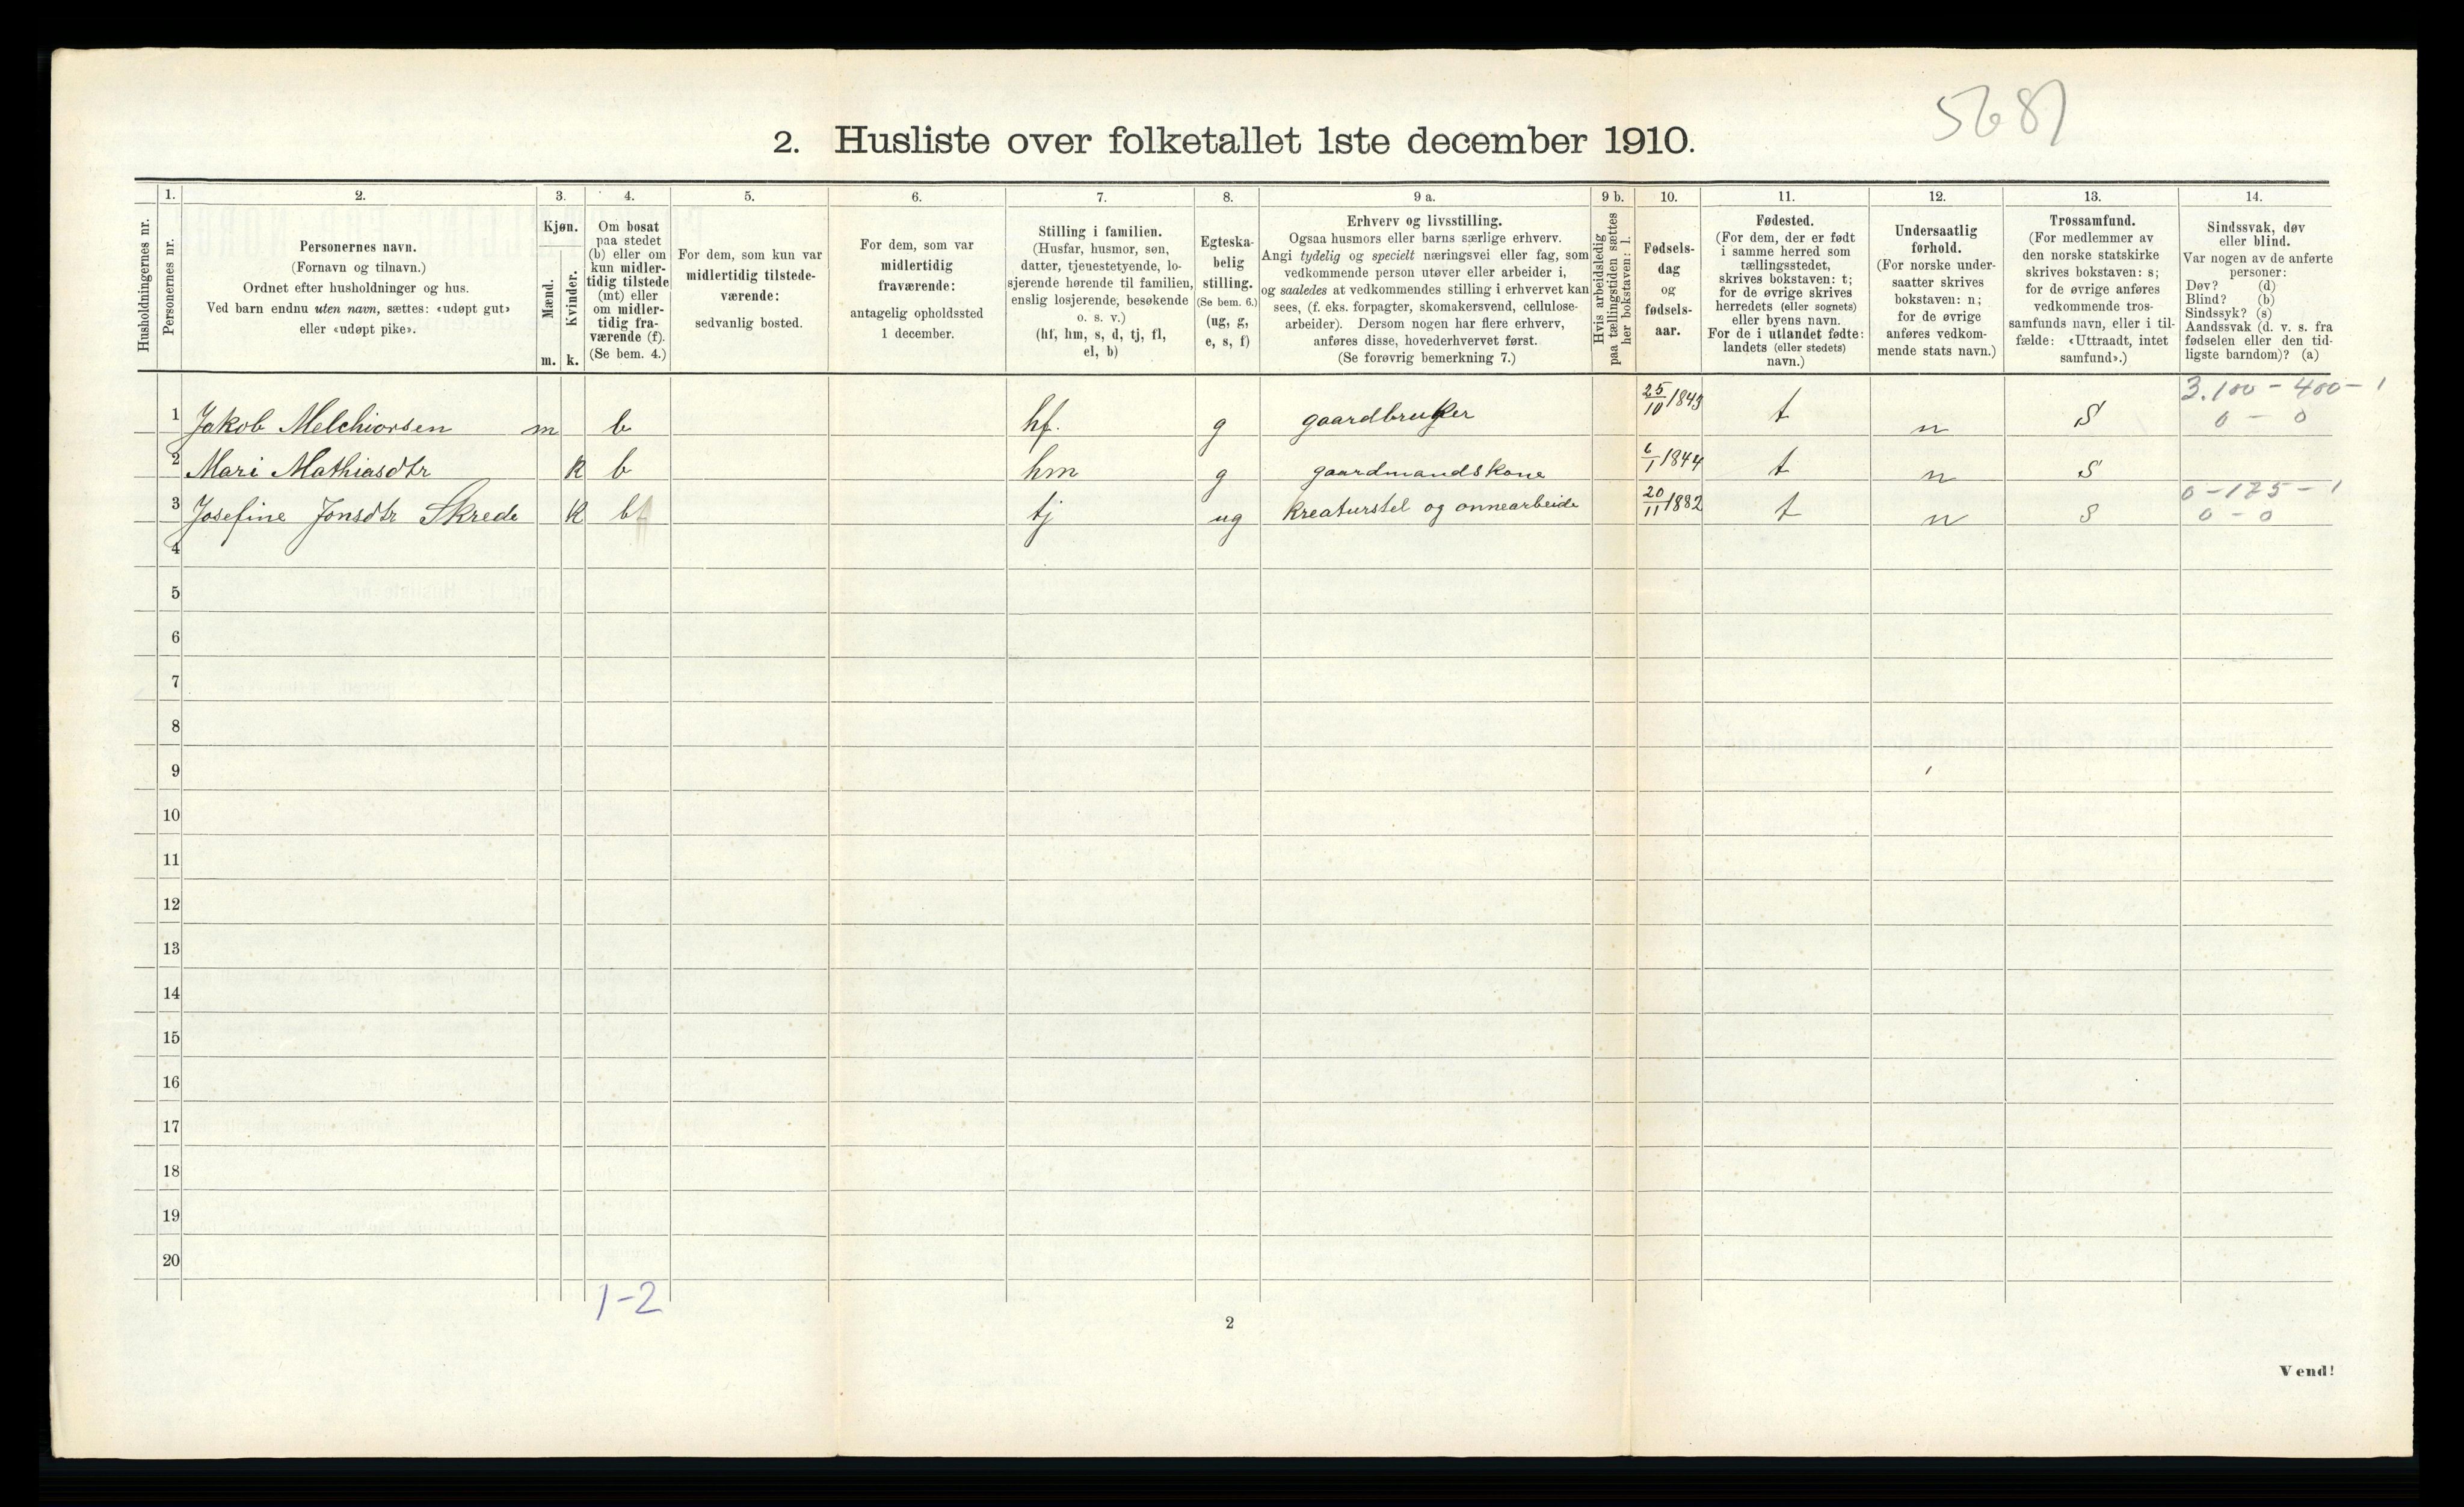 5687
2. Husliste over folketallet 1ste december 1910.
Husholdningernes nr.
1.
Personernes nr.
2.
Personernes navn.
(Fornavn og tilnavn.)
Ordnet efter husholdninger og hus.
Ved barn endnu uten navn, sættes: «udøpt gut»
eller «udøpt pike».
3.
Kjøn.
Mænd.
Kvinder.
m.
k.
4.
Om bosat
paa stedet
(b) eller om
kun midler-
tidig tilstede
(mt) eller
om midler-
tidig fra-
værende (f).
(Se bem. 4.)
5.
For dem, som kun var
midlertidig tilstede-
værende:
sedvanlig bosted.
6.
For dem, som var
midlertidig
fraværende:
antagelig opholdssted
1 december.
7.
Stilling i familien.
(Husfar, husmor, søn,
datter, tjenestetyende, lo-
sjerende hørende til familien,
enslig losjerende, besøkende
o. s. v.)
(hf, hm, s, d, tj, fl,
el, b)
8.
Egteska-
belig
stilling.
(Se bem. 6.)
(ug, g,
e, s, f)
9 a.
Erhverv og livsstilling.
Ogsaa husmors eller barns særlige erhverv.
Angi tydelig og specielt næringsvei eller fag, som
vedkommende person utøver eller arbeider i,
og saaledes at vedkommendes stilling i erhvervet kan
sees, (f. eks. forpagter, skomakersvend, cellulose-
arbeider). Dersom nogen har flere erhverv,
anføres disse, hovederhvervet først.
(Se forøvrig bemerkning 7.)
9 b.
Hvis arbeidsledig
paa tællingstiden sættes
her bokstaven: l.
10.
Fødsels-
dag
og
fødsels-
aar.
11.
Fødested.
(For dem, der er født
i samme herred som
tællingsstedet,
skrives bokstaven: t;
for de øvrige skrives
herredets (eller sognets)
eller byens navn.
For de i utlandet fødte:
landets (eller stedets)
navn.)
12.
Undersaatlig
forhold.
(For norske under-
saatter skrives
bokstaven: n;
for de øvrige
anføres vedkom-
mende stats navn.)
13.
Trossamfund.
(For medlemmer av
den norske statskirke
skrives bokstaven: s;
for de øvrige anføres
vedkommende tros-
samfunds navn, eller i til-
fælde: «Uttraadt, intet
samfund».)
14.
Sindssvak, døv
eller blind.
Var nogen av de anførte
personer:
Døv? (d)
Blind? (b)
Sindssyk? (s)
Aandssvak (d. v. s. fra
fødselen eller den tid-
ligste barndom)? (a)
3.100 - 400 - 1
1 Jakob Melchiorsen m b hf. g gaardbruker 25/10 1843 t n S 0 - 0
2 Mari Mathiasdtr K b hm g gaardmandskone 6/1 1844 t n S
0 - 175 - 1
3 Josefine Jonsdtr Skrede K b tj ug Kreaturstel og onnearbeide 20/11 1882 t n S 0 - 0
4
5
6
7
8
9
10
11
12
13
14
15
16
17
18
19
20
1-2
2
Vend!